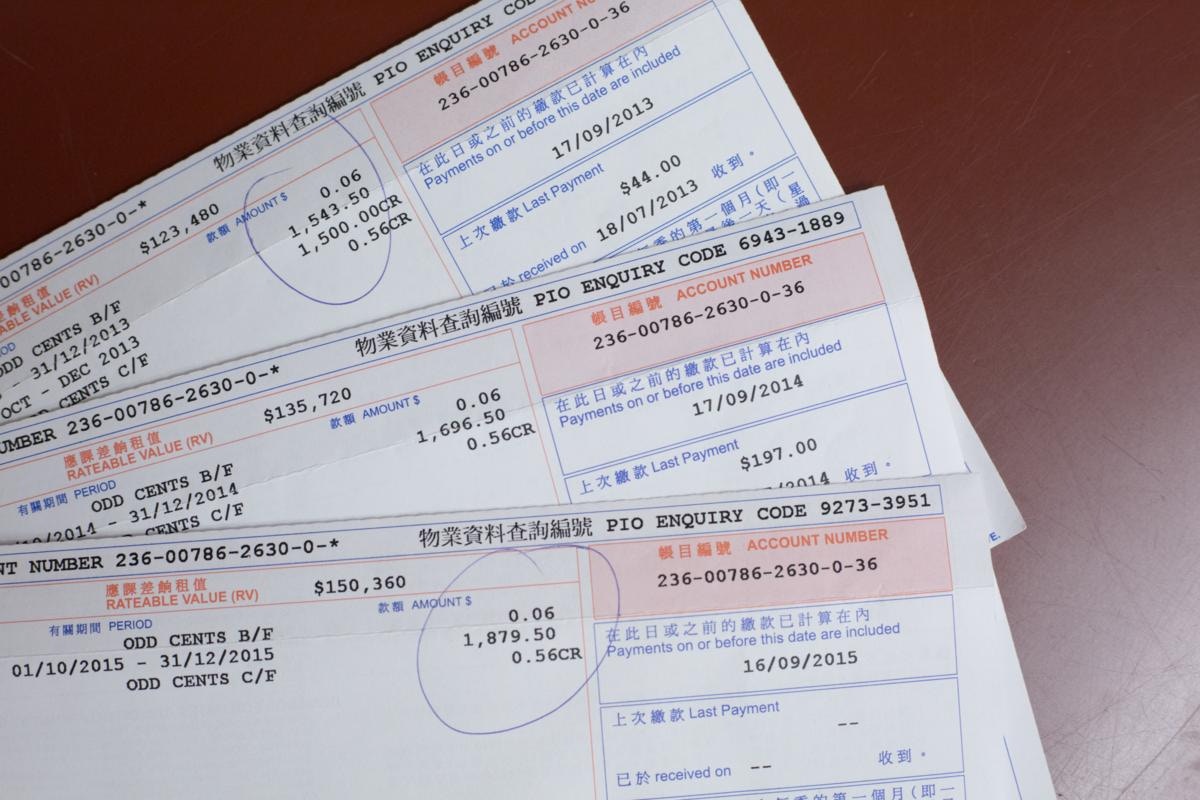 物業資料查詢編號 PIO ENQUIRY
帳目編號 ACCOUNT
236-00786-2630-0-36
在此日或之前的繳款已計算在內
Payments on or before this date are included
17/09/2013
上次繳款 Last Payment
$44.00
received on 18/07/2013 收到。
的第一個月(即一
00786-2630-0-*
$123,480
應課差餉租值
RATEABLE VALUE (RV)
款額 AMOUNT $
0.06
1,543.50
1,500.00CR
0.56CR
ODD CENTS B/F
- 31/12/2013
OCT - DEC 2013
CENTS C/F
物業資料查詢編號 PIO ENQUIRY CODE 6943-1889
帳目編號 ACCOUNT NUMBER
236-00786-2630-0-36
在此日或之前的繳款已計算在內
Payments on or before this date are included
17/09/2014
上次繳款 Last Payment
$197.00
2014 收到。
NUMBER 236-00786-2630-0-*
應課差餉租值
RATEABLE VALUE (RV)
$135,720
有關期間 PERIOD
款額 AMOUNT $
ODD CENTS B/F 0.06
10/2014 - 31/12/2014 1,696.50
CENTS C/F 0.56CR
NT NUMBER 236-00786-2630-0-*
物業資料查詢編號 PIO ENQUIRY CODE 9273-3951
帳目編號 ACCOUNT NUMBER
236-00786-2630-0-36
應課差餉租值
RATEABLE VALUE (RV)
$150,360
有關期間 PERIOD
款額 AMOUNT $
ODD CENTS B/F 0.06
01/10/2015 - 31/12/2015 1,879.50
ODD CENTS C/F 0.56CR
在此日或之前的繳款已計算在內
Payments on or before this date are included
16/09/2015
上次繳款 Last Payment
--
已於 received on -- 收到。
的第一個月(即一